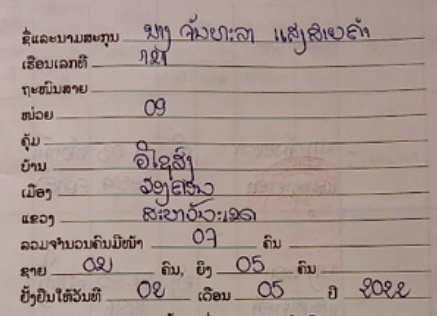 ຊື່ແລະນາມສະກຸນ ນາງ ຈັນທະລາ ແສງສາຍຄຳ
ເຮືອນເລກທີ 121
ຖະໜົນສາຍ
ໜ່ວຍ 09
ຄຸ້ມ
ບ້ານ
ເມືອງ
ແຂວງ ສະຫວັນນະເຂດ
ລວມຈຳນວນຄົນມີໜ້າ 07 ຄົນ
ຊາຍ 02 ຄົນ, ຍິງ 05 ຄົນ
ຢັ້ງຢືນໃຫ້ວັນທີ 02 ເດືອນ 05 ປີ 2022